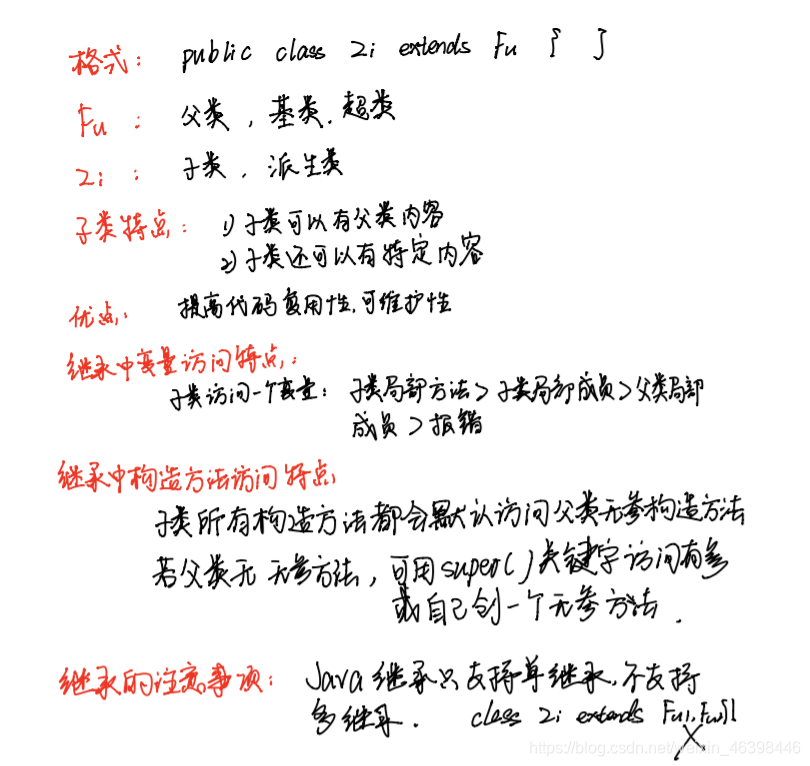 格式： public class Zi extends Fu { }
Fu ： 父类，基类．超类
Zi ： 子类．派生类
子类特点： 1) 子类可以有父类内容
2) 子类还可以有特定内容
优点： 提高代码复用性，可维护性
继承中变量访问特点：
子类访问一个变量： 子类局部方法 > 子类局部成员 > 父类局部
成员 > 报错
继承中构造方法访问特点
子类所有构造方法都会默认访问父类无参构造方法
若父类无 无参方法，可用super( )关键字访问有参
或自己创一个无参方法．
继承的注意事项： Java 继承只支持单继承，不支持
多继承． class Zi extends Fu1, Fu2{}
X
https://blog.csdn.net/weixin_46398446